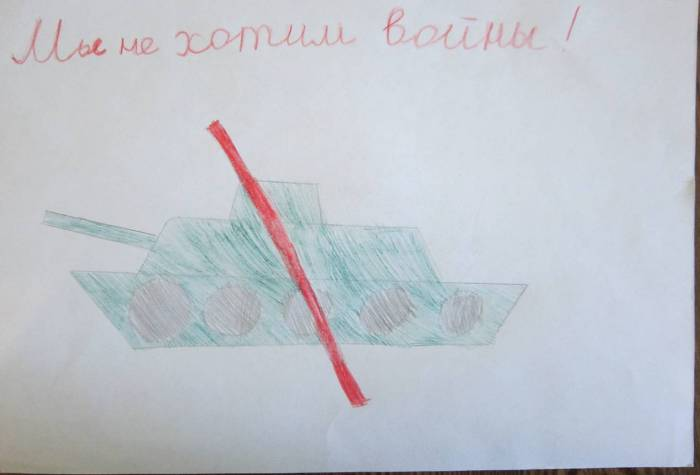 Мы не хотим войны!